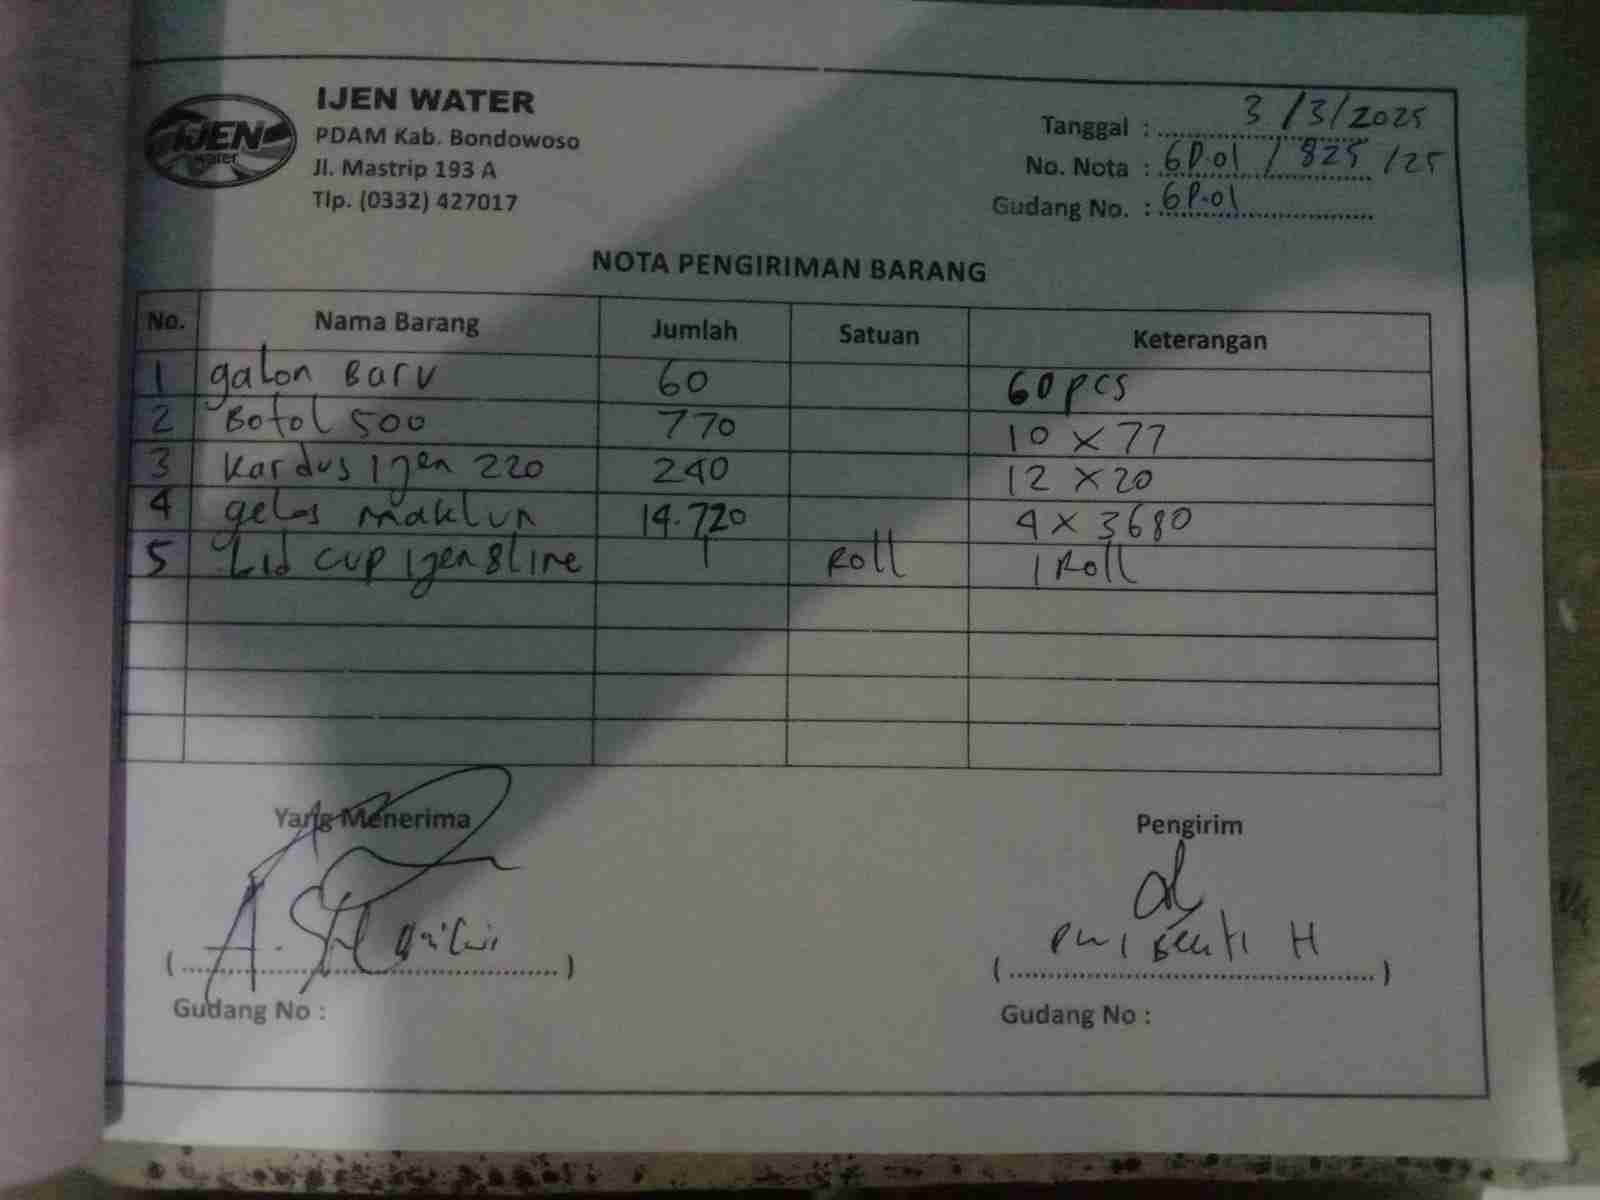 IJEN water
IJEN WATER
PDAM Kab. Bondowoso
Jl. Mastrip 193 A
Tlp. (0332) 427017
Tanggal : 3/3/2025
No. Nota : GP.01 / 825 /25
Gudang No. : GP.01
NOTA PENGIRIMAN BARANG
No. Nama Barang Jumlah Satuan Keterangan
1 galon Baru 60 60 pcs
2 Botol 500 770 10 x 77
3 Kardus Ijen 220 240 12 x 20
4 gelas maklun 14.720 4 x 3680
5 Lid cup Ijen 8 line 1 Roll 1 Roll
Yang Menerima
Pengirim
H
Gudang No :
Gudang No :